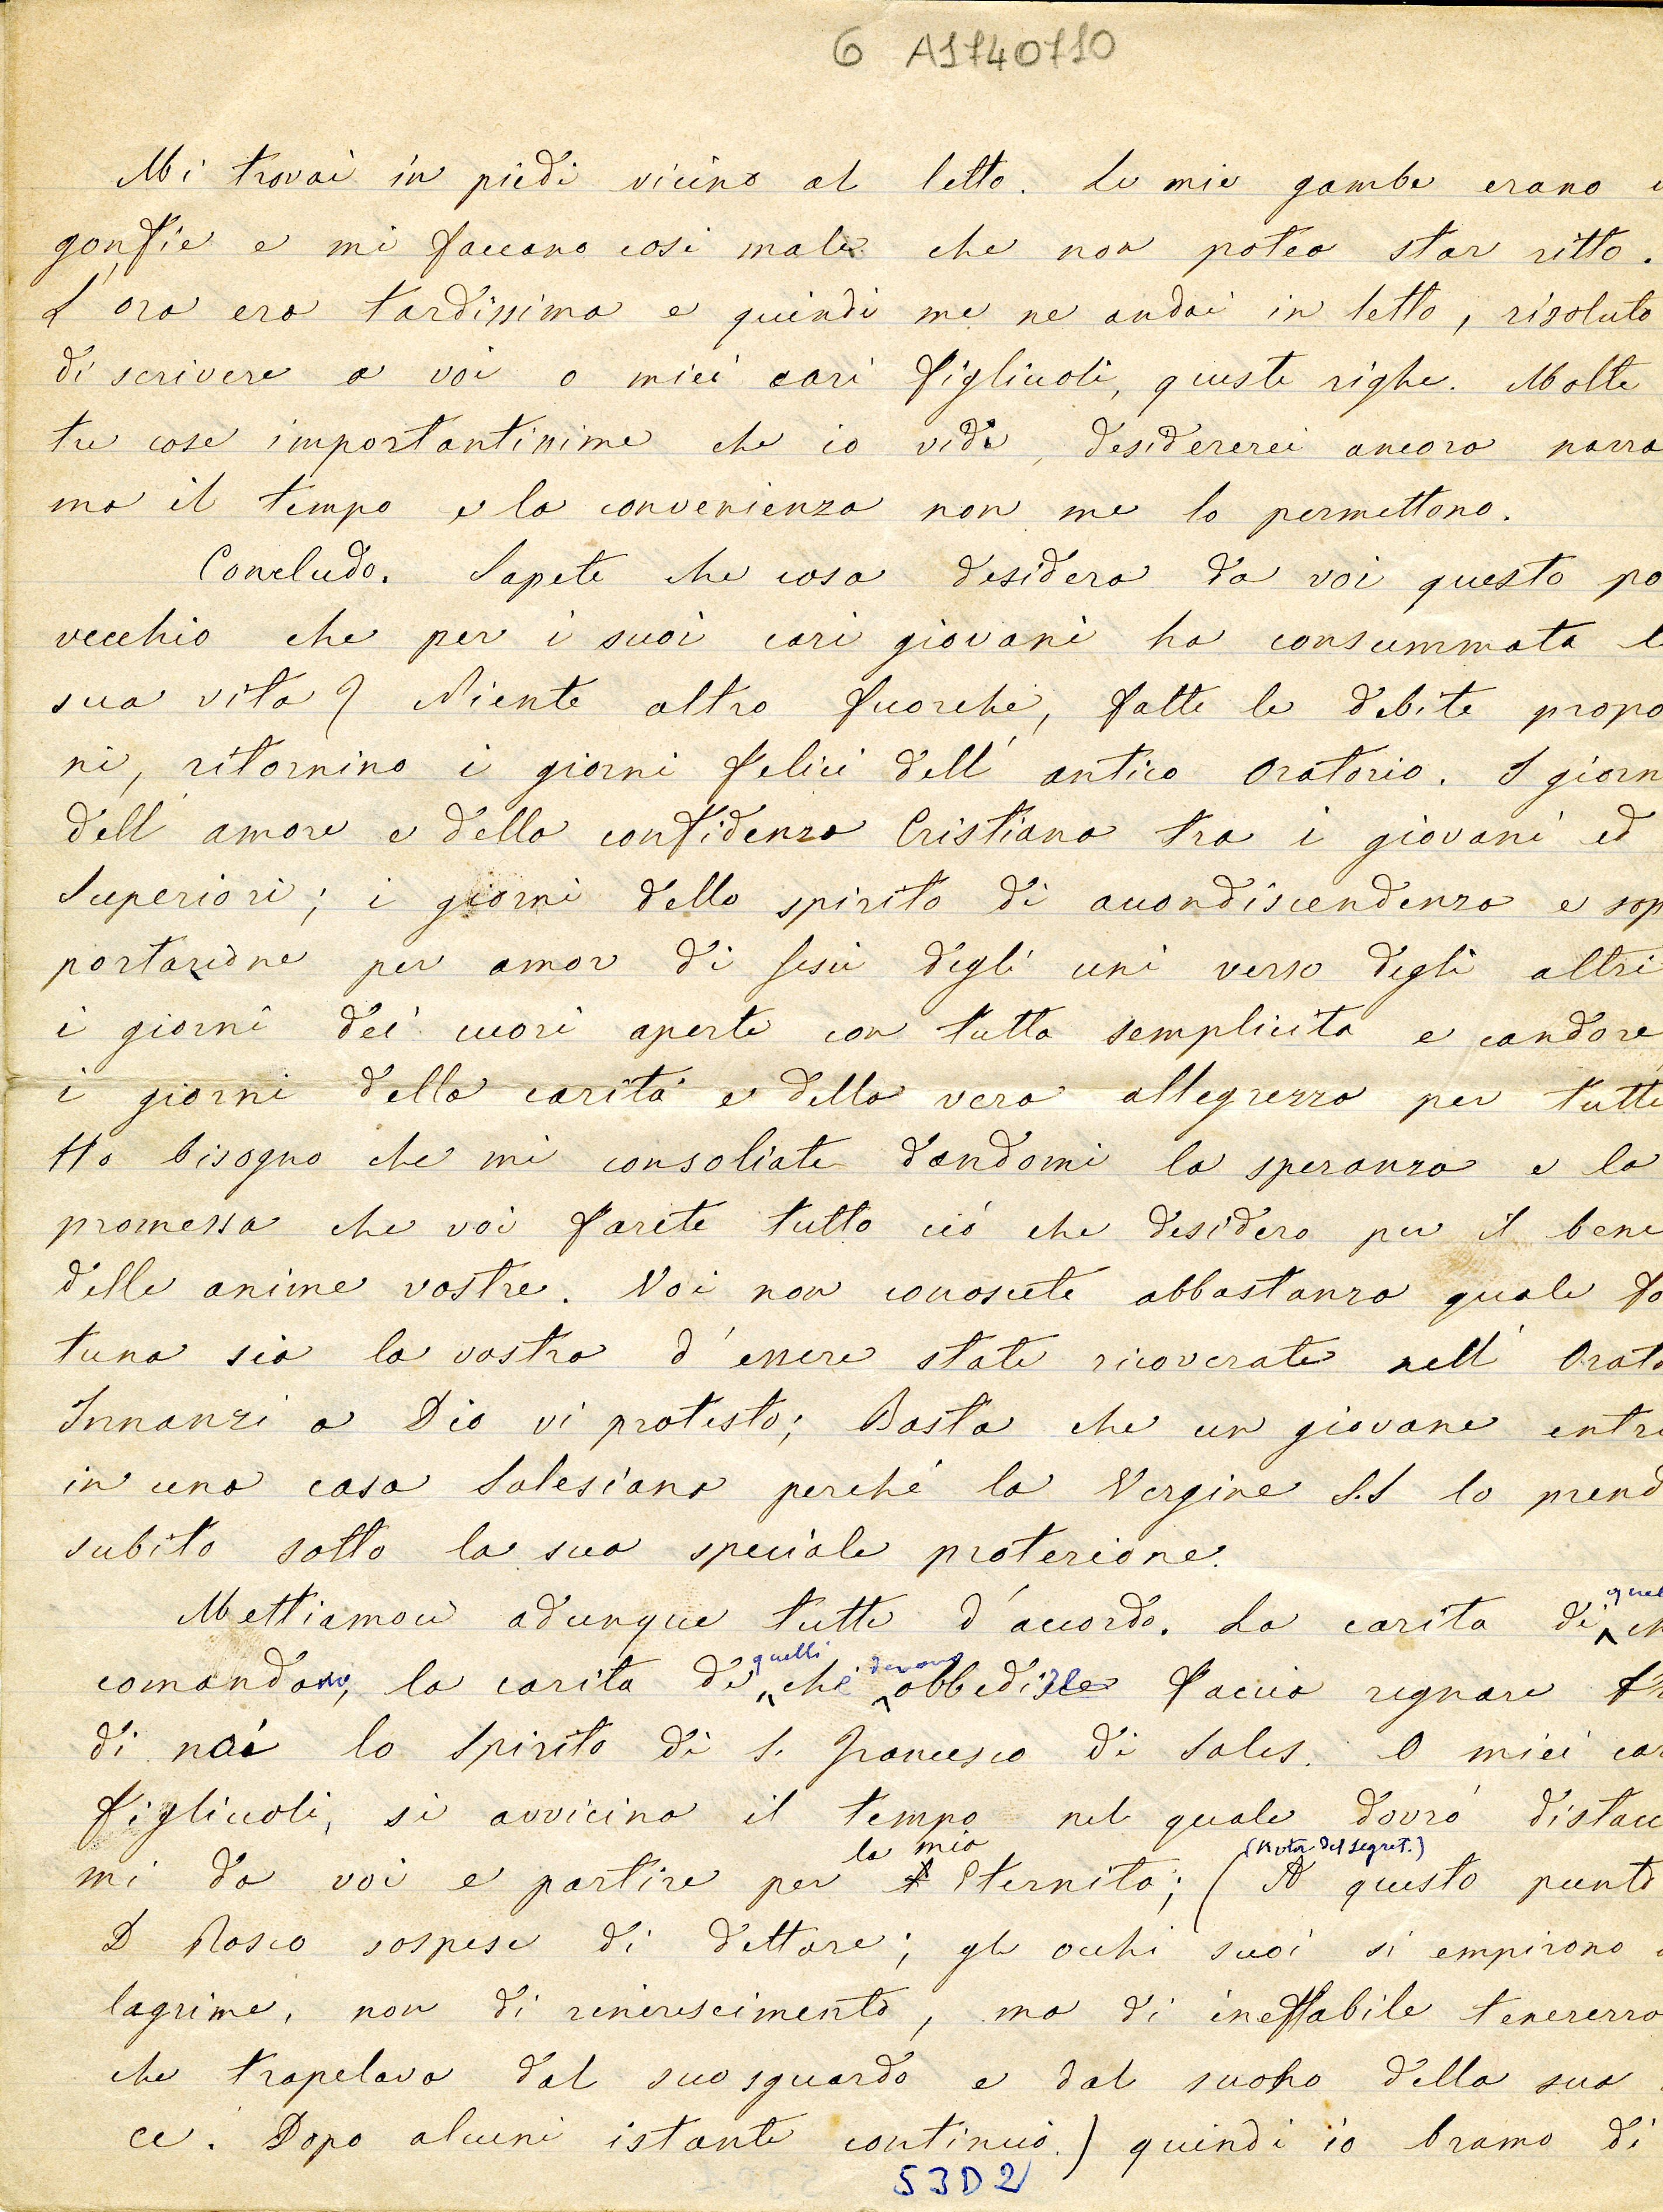 6 A1740710
Mi trovai in piedi vicino al letto. Le mie gambe erano
gonfie e mi faceano così male che non potea star ritto.
L'ora era tardissima e quindi me ne andai in letto, risoluto
di scrivere a voi o miei cari figliuoli, queste righe. Molte
tre cose importantissime che io vidi, desidererei ancora narra
ma il tempo e la convenienza non me lo permettono.
Concludo. Sapete che cosa desidera da voi questo po
vecchio che per i suoi cari giovani ha consummata l
sua vita? Niente altro fuorchè, fatte le debite propo
ni, ritornino i giorni felici dell'antico Oratorio. I giorn
dell'amore e della confidenza Cristiana tra i giovani ed
Superiori; i giorni dello spirito di accondiscendenza e sop
portazione per amor di Gesù degli uni verso degli altri
i giorni dei cuori aperti con tutta semplicita e candore
i giorni della carità e della vera allegrezza per tutti
Ho bisogno che mi consoliate dandomi la speranza e la
promessa che voi farete tutto ciò che desidero per il bene
delle anime vostre. Voi non conoscete abbastanza quale fo
tuna sia la vostra d'essere stati ricoverati nell'Orato
Innanzi a Dio vi protesto; Basta che un giovane entri
in una casa Salesiana perchè la Vergine S.S lo prend
subito sotto la sua speciale protezione.
Mettiamoci adunque tutti d'accordo. La carita di quel ch
comandano, la carita di quelli che devono obbedire faccia regnare fr
di noi lo Spirito di S. Francesco di Sales. O miei car
figliuoli, si avvicina il tempo nel quale dovrò distacc
mi da voi e partire per la mia Eternità; ( (Nota del Segret.) A questo punto
D Bosco sospese di dettare; gli occhi suoi si empirono
lagrime, non di rincrescimento, ma di ineffabile tenerezza
che trapelava dal suo sguardo e dal suono della sua
ce. Dopo alcuni istanti continuò.) quindi io bramo di
53D2